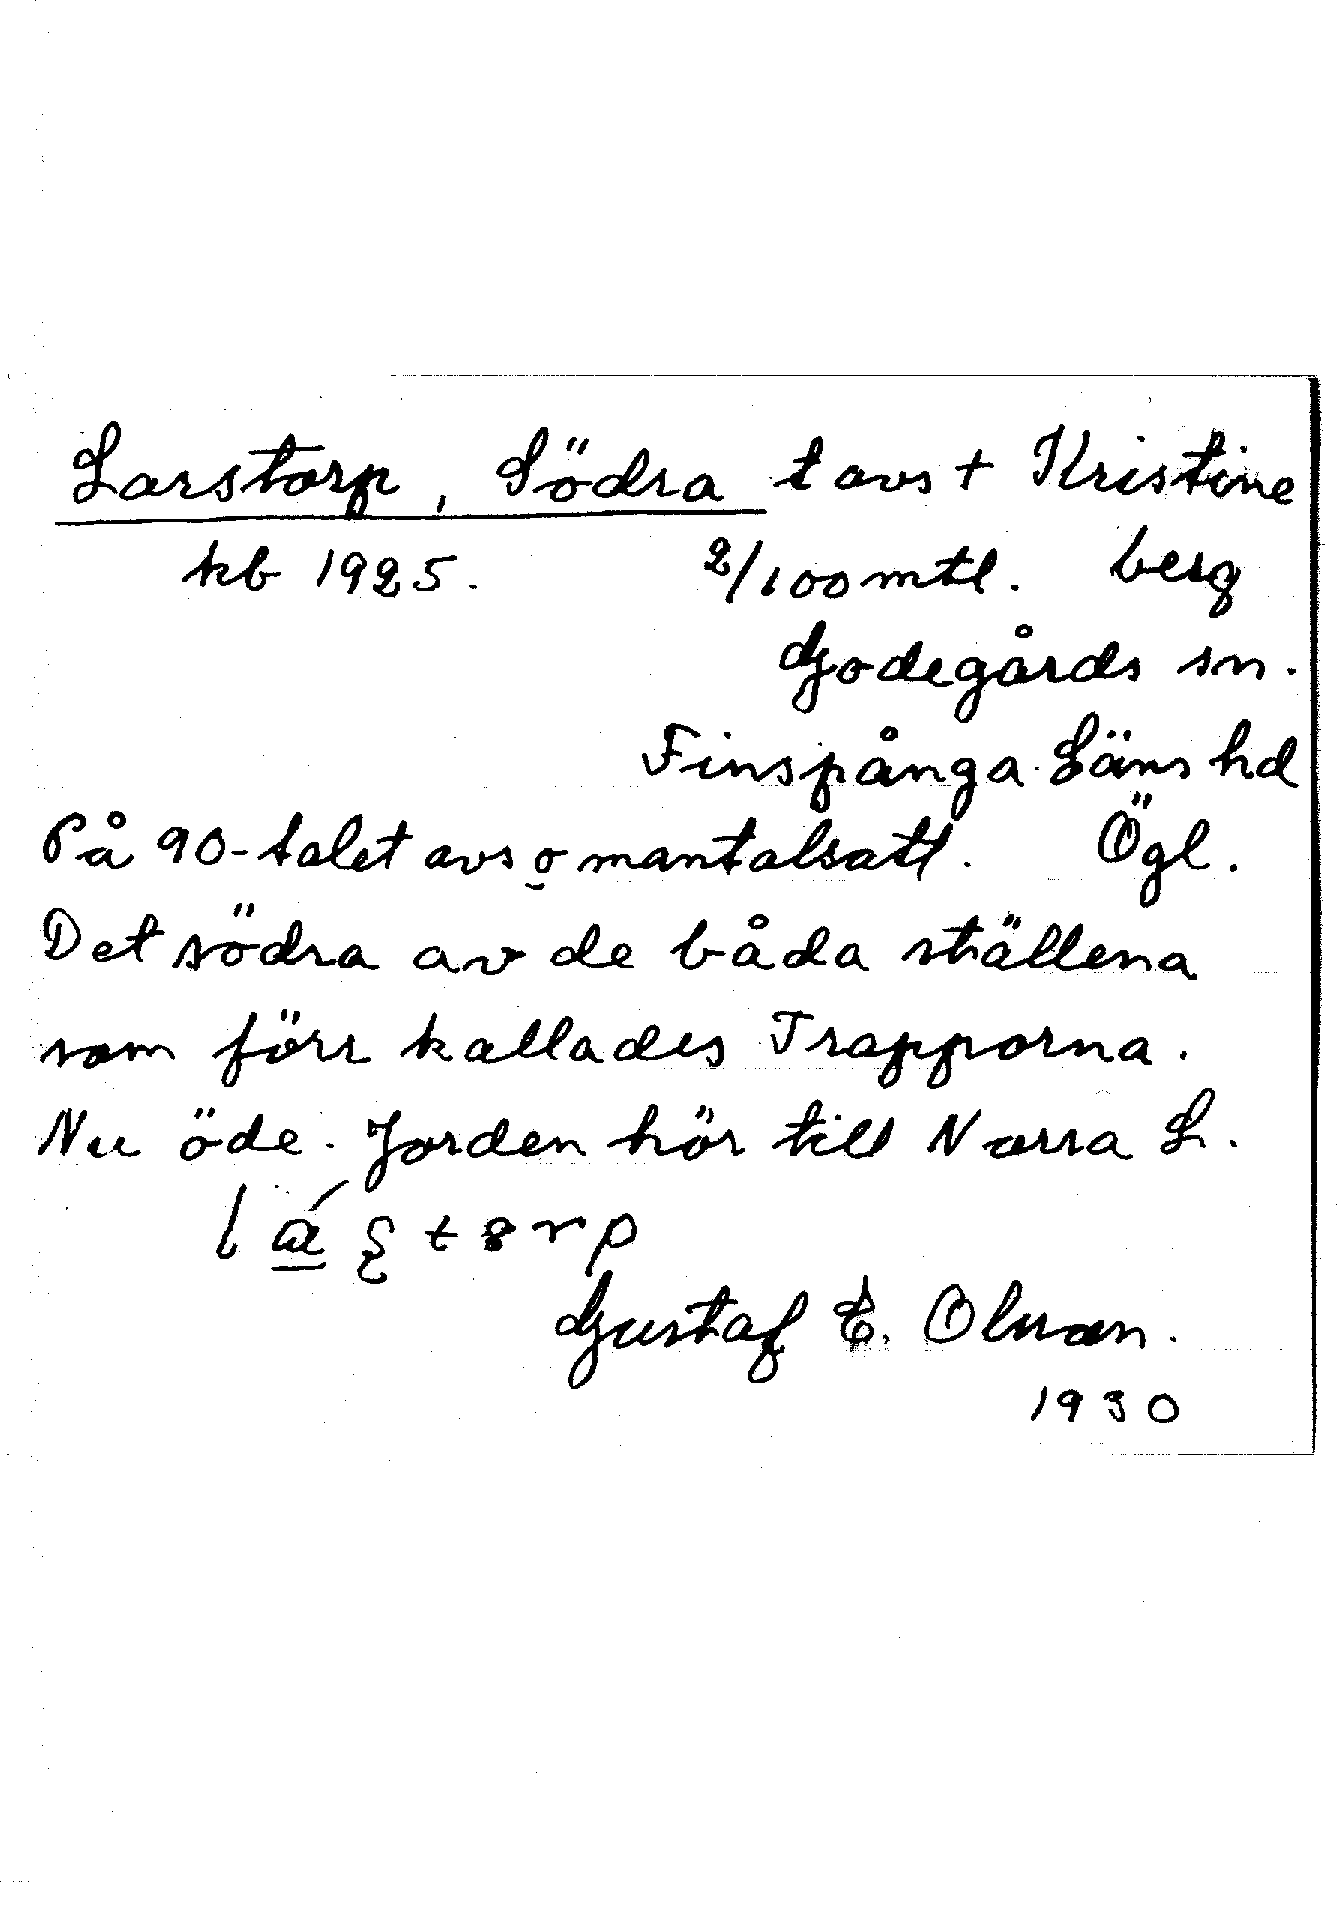 Larstorp, Södra t avs + Kristine
kb 1925. 2/100 mtl. berg
Godegårds sn.
Finspånga Läns hd
På 90-talet avs o mantalsatt. Ögl.
Det södra av de båda ställena
som förr kallades Trapporna.
Nu öde. Jorden hör till Norra L.
Gustaf E. Olsson.
1930